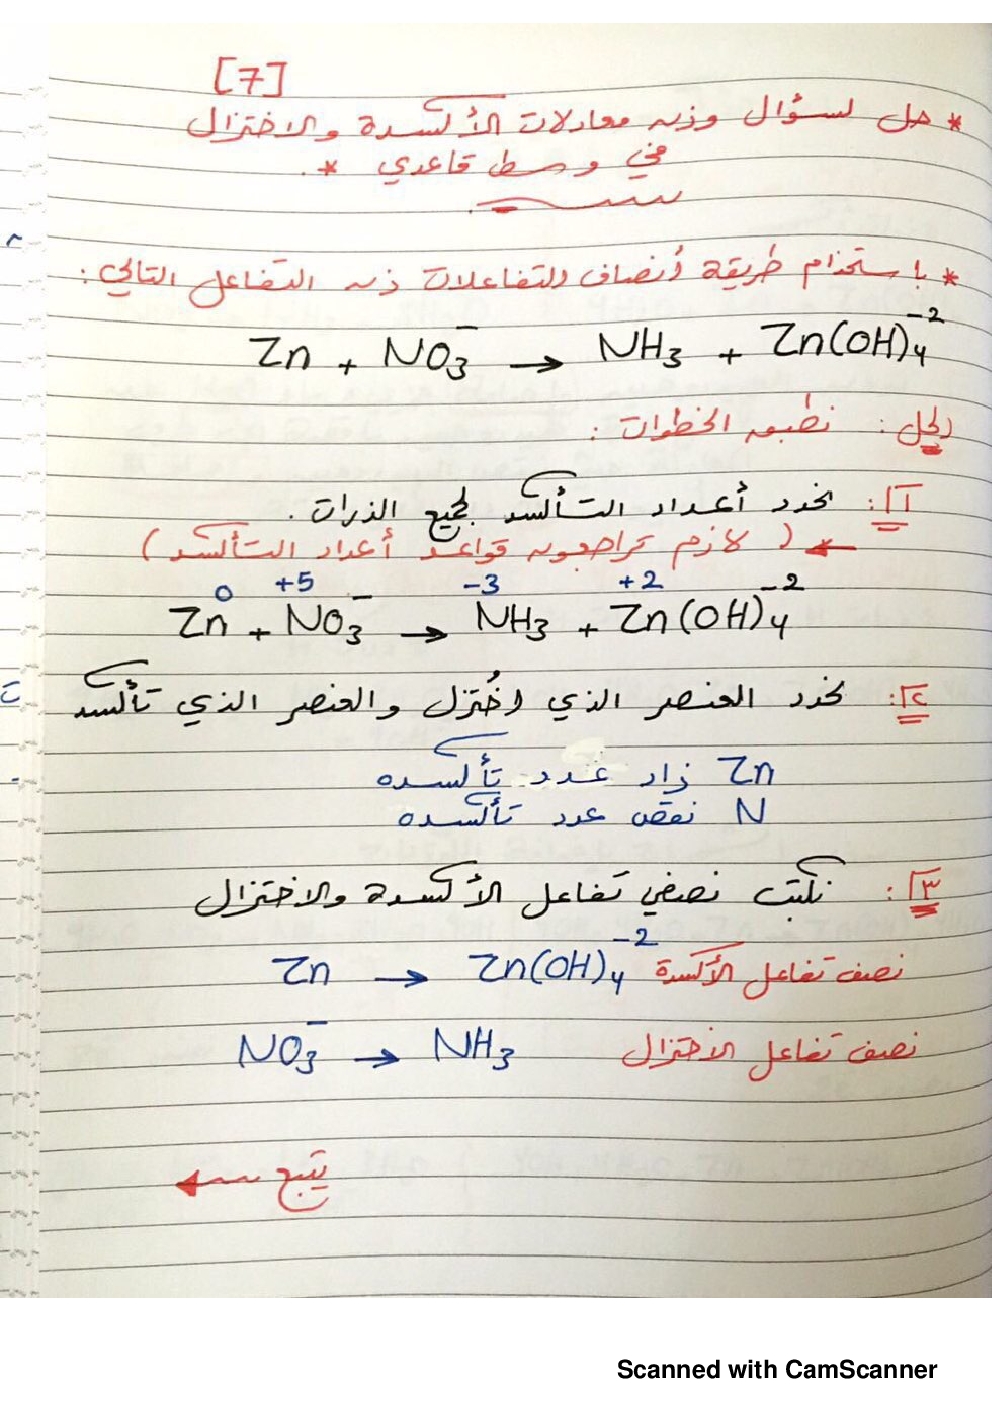 [7]
* حل لسؤال وزن معادلات الأكسدة والاختزال
في وسط قاعدي *.
* باستخدام طريقة أنصاف التفاعلات زن التفاعل التالي:
Zn + NO₃⁻ → NH₃ + Zn(OH)₄⁻²
الحل: نطبق الخطوات:
١: نحدد أعداد التأكسد لجميع الذرات.
( لازم تراجعون قواعد أعداد التأكسد )
0 +5 -3 +2
Zn + NO₃⁻ → NH₃ + Zn(OH)₄⁻²
٢: نحدد العنصر الذي اختُزل والعنصر الذي تأكسد
Zn زاد عدد تأكسده
N نقص عدد تأكسده
٣: نكتب نصفي تفاعل الأكسدة والاختزال
نصف تفاعل الأكسدة Zn → Zn(OH)₄⁻²
نصف تفاعل الاختزال NO₃⁻ → NH₃
يتبع ←
Scanned with CamScanner